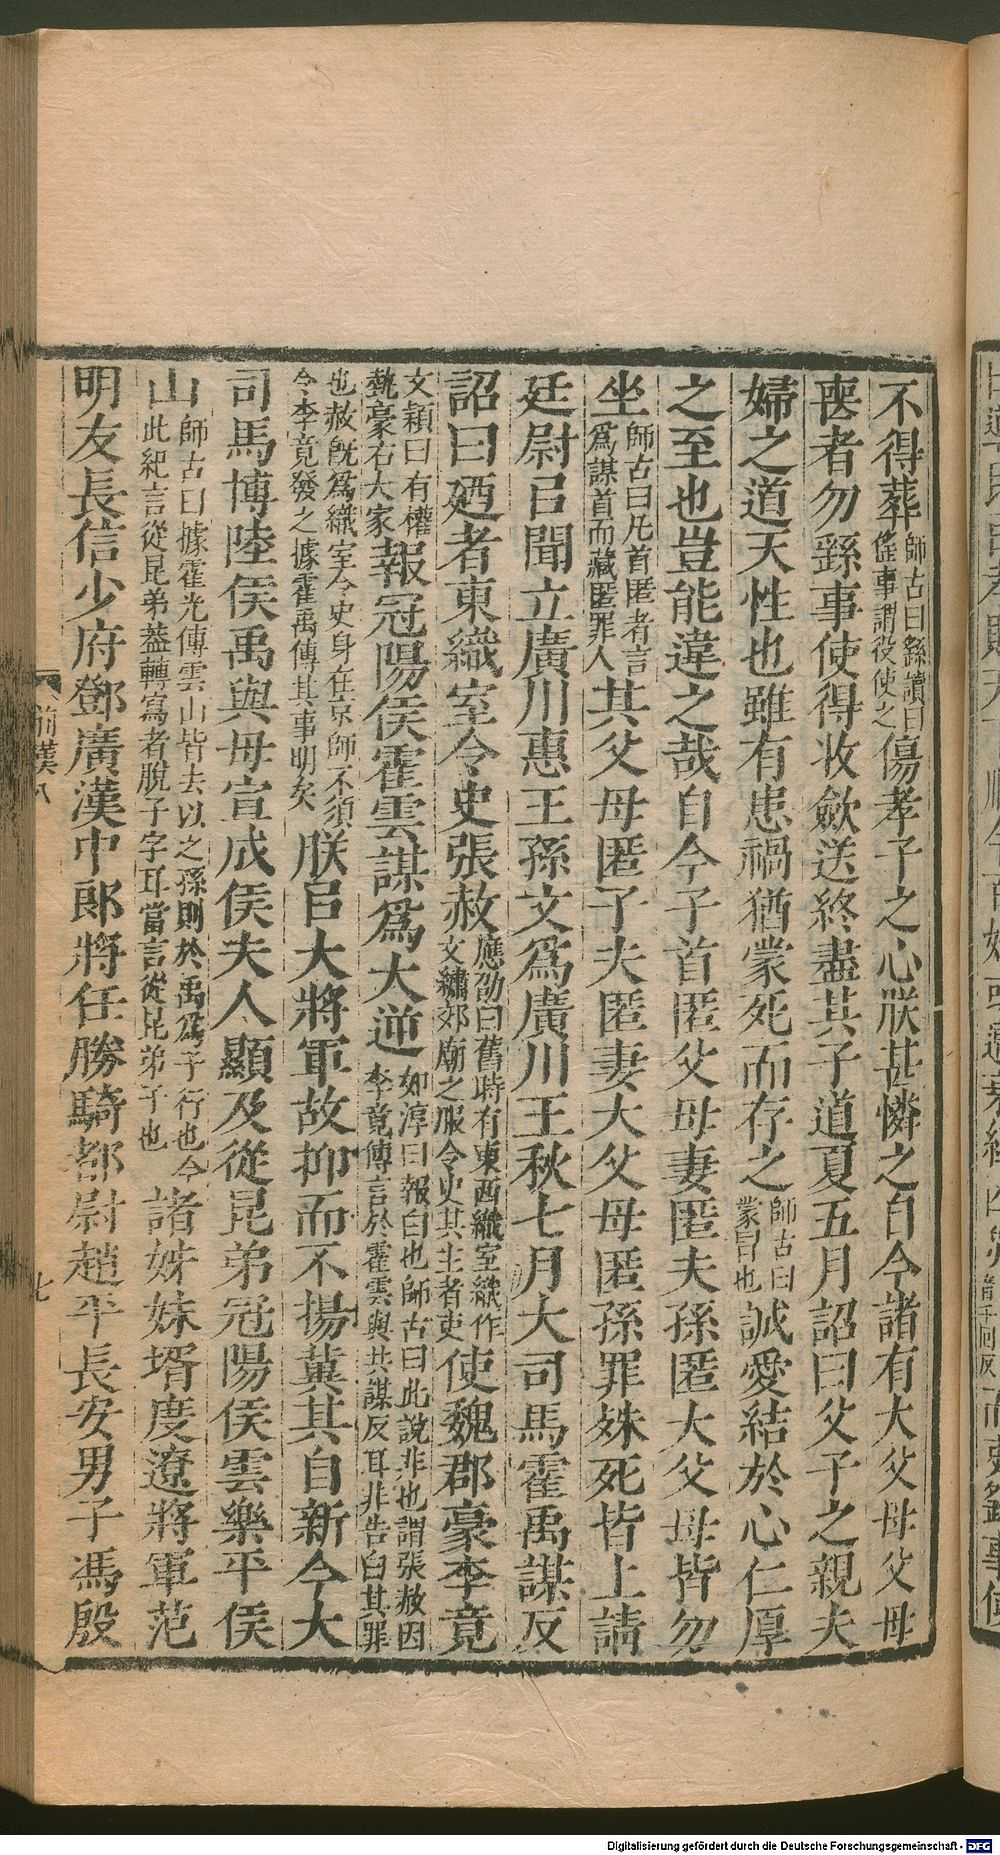 不得葬師古曰繇讀曰傜事謂役使之傷孝子之心朕甚憐之自今諸有大父母父母
喪者勿繇事使得收斂送終盡其子道夏五月詔曰父子之親夫
婦之道天性也雖有患禍猶蒙死而存之師古曰蒙冒也誠愛結於心仁厚
之至也豈能違之哉自今子首匿父母妻匿夫孫匿大父母皆勿
坐師古曰凡首匿者言爲謀首而藏匿罪人其父母匿子夫匿妻大父母匿孫罪殊死皆上請
廷尉㠯聞立廣川惠王孫文爲廣川王秋七月大司馬霍禹謀反
詔曰廼者東織室令史張赦應劭曰舊時有東西織室織作文繡郊廟之服令史其主者吏使魏郡豪李竟
文穎曰有權埶豪右大家報冠陽侯霍雲謀爲大逆如淳曰報白也師古曰此說非也謂張赦因李竟傳言於霍雲與共謀反耳非告白其罪
也赦旣爲織室令史身在京師不須令李竟發之據霍禹傳其事明矣朕㠯大將軍故抑而不揚冀其自新今大
司馬博陸侯禹與母宣成侯夫人顯及從昆弟冠陽侯雲樂平侯
山師古曰據霍光傳雲山皆去以之孫則於禹爲子行也今此紀言從昆弟葢轉寫者脫子字耳當言從昆弟子也諸姊妹壻度遼將軍范
明友長信少府鄧廣漢中郎將任勝騎都尉趙平長安男子馮殷
前漢八
七
Digitalisierung gefördert durch die Deutsche Forschungsgemeinschaft - DFG